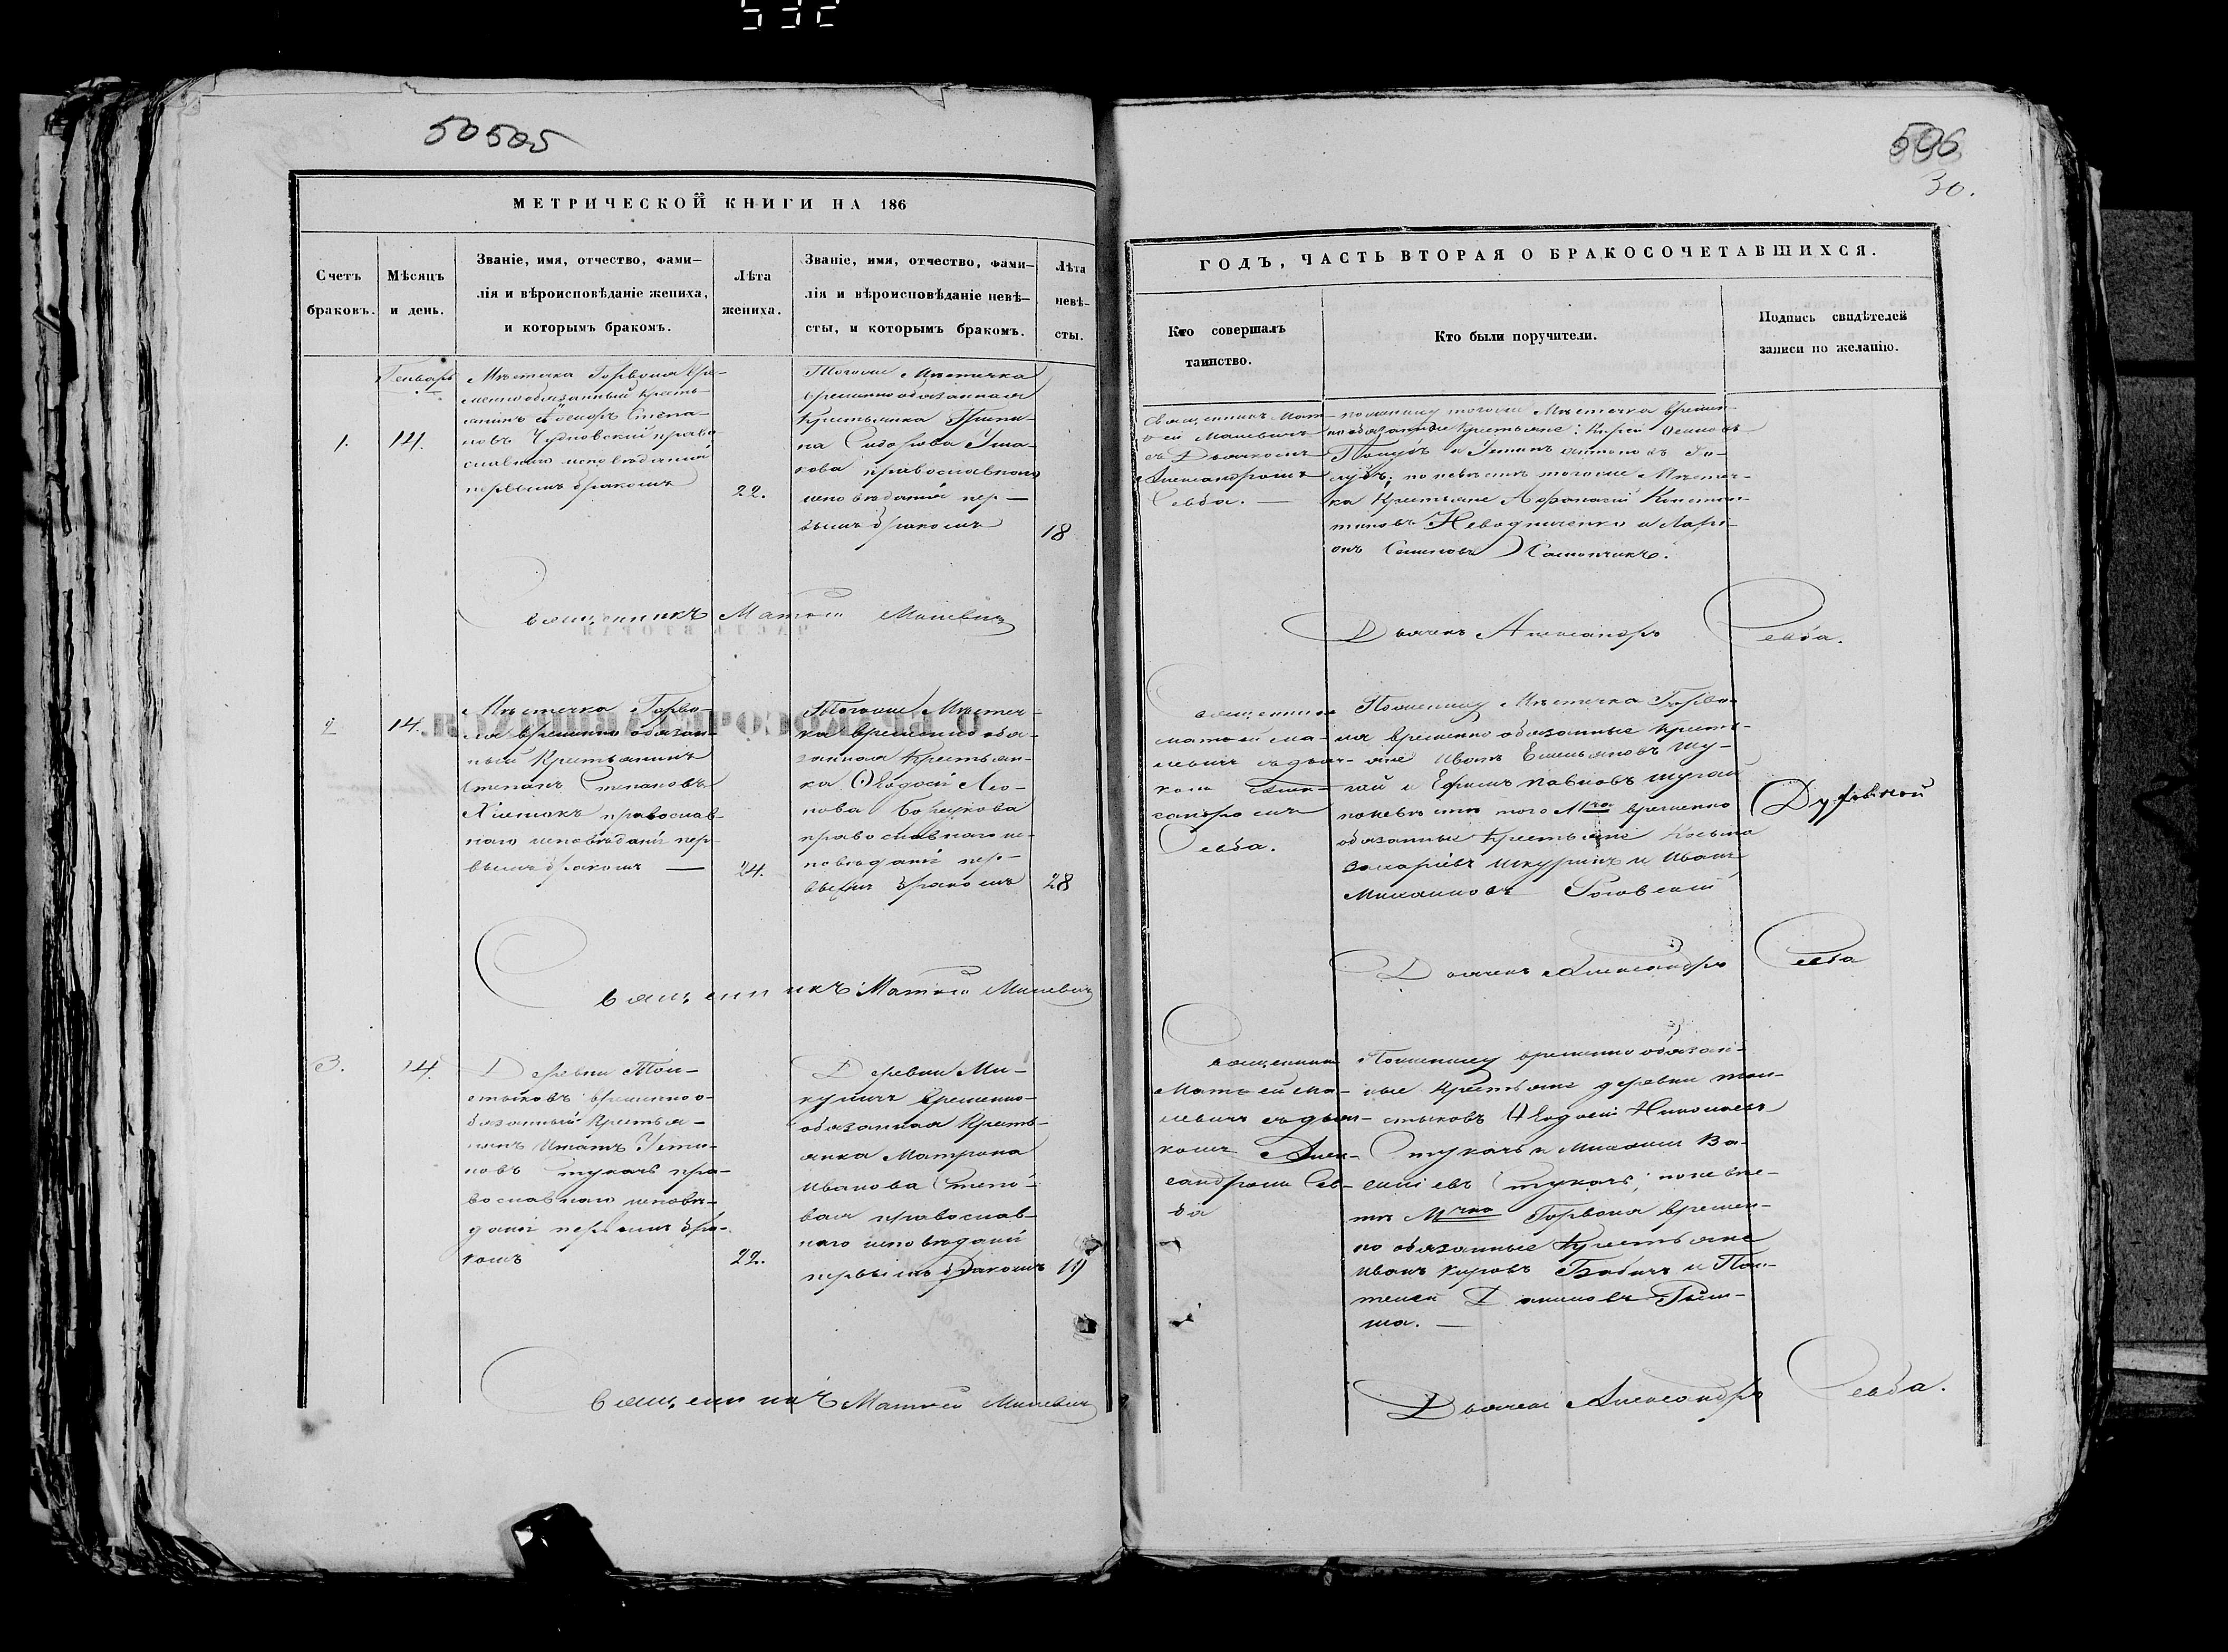 532
50505
МЕТРИЧЕСКОЙ КНИГИ НА 186
Счетъ
браковъ.
Мѣсяцъ
и день.
Званіе, имя, отчество, фами-
лія и вѣроисповѣданіе жениха,
и которымъ бракомъ.
Лѣта
жениха.
Званіе, имя, отчество, фами-
лія и вѣроисповѣданіе невѣ-
сты, и которымъ бракомъ.
Лѣта
невѣ-
сты.
1.
Генварь
14.
Мѣстечка Горволя вре-
менно обязанный кресть
янинъ Степа-
новъ Чудновскій право
славнаго исповѣданія
первымъ бракомъ
22.
Тогоже Мѣстечка
временно обязанная
Крестьянка
на Сидорова
православнаго
исповѣданія пер-
вымъ бракомъ
18
Священникъ Матѳей Малевич
2
14.
Мѣстечка Горво-
ля временно обязан-
ный Крестьянинъ
Степанъ Степановъ
православ-
наго исповѣданія пер-
вымъ бракомъ
24.
Тогоже Мѣстеч-
ка временно обя-
занная крестьян-
ка Ѳеодосія Лео-
нова
православнаго ис-
повѣданія пер-
вымъ бракомъ
28
Священникъ Матѳей Малевич
3.
14.
Деревни Тол-
стыковъ временно о-
бязанный Крестья-
нинъ Игнатъ Усти-
новъ Стукачъ пра-
вославнаго исповѣ-
данія первымъ бра-
комъ
22.
Деревни Ми-
куличъ временно-
обязанная Кресть-
янка Матрона
Иванова
православ-
наго исповѣданія
первымъ бракомъ
19
Священникъ Матѳей Малевич
506
30.
ГОДЪ, ЧАСТЬ ВТОРАЯ О БРАКОСОЧЕТАВШИХСЯ.
Кто совершалъ
таинство.
Кто были поручители.
Подпись свидѣтелей
записи по желанію.
Священникъ Мат-
ѳей Малевичъ
съ Дьячкомъ
Александромъ
Севба.
по жениху тогоже Мѣстечка времен-
но обязанные Крестьяне:
Голубъ и Антоновъ Го-
лубъ; по невѣстѣ тогоже Мѣстеч-
ка Крестьяне Афанасій Констан-
тиновъ и Лари-
онъ Семеновъ
Дьячекъ Александръ Севба.
Священникъ
Матѳей Ма-
левичъ съ дьяч-
комъ Алек-
сандромъ
Севба.
По жениху Мѣстечка Горво-
ля временно обязанные Кресть-
яне Иванъ Емельяновъ Шу-
гай и Ефимъ Павловъ Шугай
по невѣстѣ того М<sup>чка</sup> временно
обязанные Крестьяне Косьма
Захаріевъ и Иванъ
Михайловъ Роговскій
Дьячекъ Александръ Севба
Священникъ
Матѳей Ма-
левичъ съ дьяч-
комъ Алек-
сандромъ Сев-
ба
По жениху временно обязан-
ные Крестьяне деревни Тол-
стыковъ Ѳеодосій Николаевъ
Стукачъ и Михаилъ Ва-
силіевъ Стукачъ; по невѣс-
тѣ М<sup>чка</sup> Горволя времен-
но обязанные Крестьяне
Иванъ Бабичъ и Пан-
телей Даниловъ
Дьячекъ Александръ Севба.